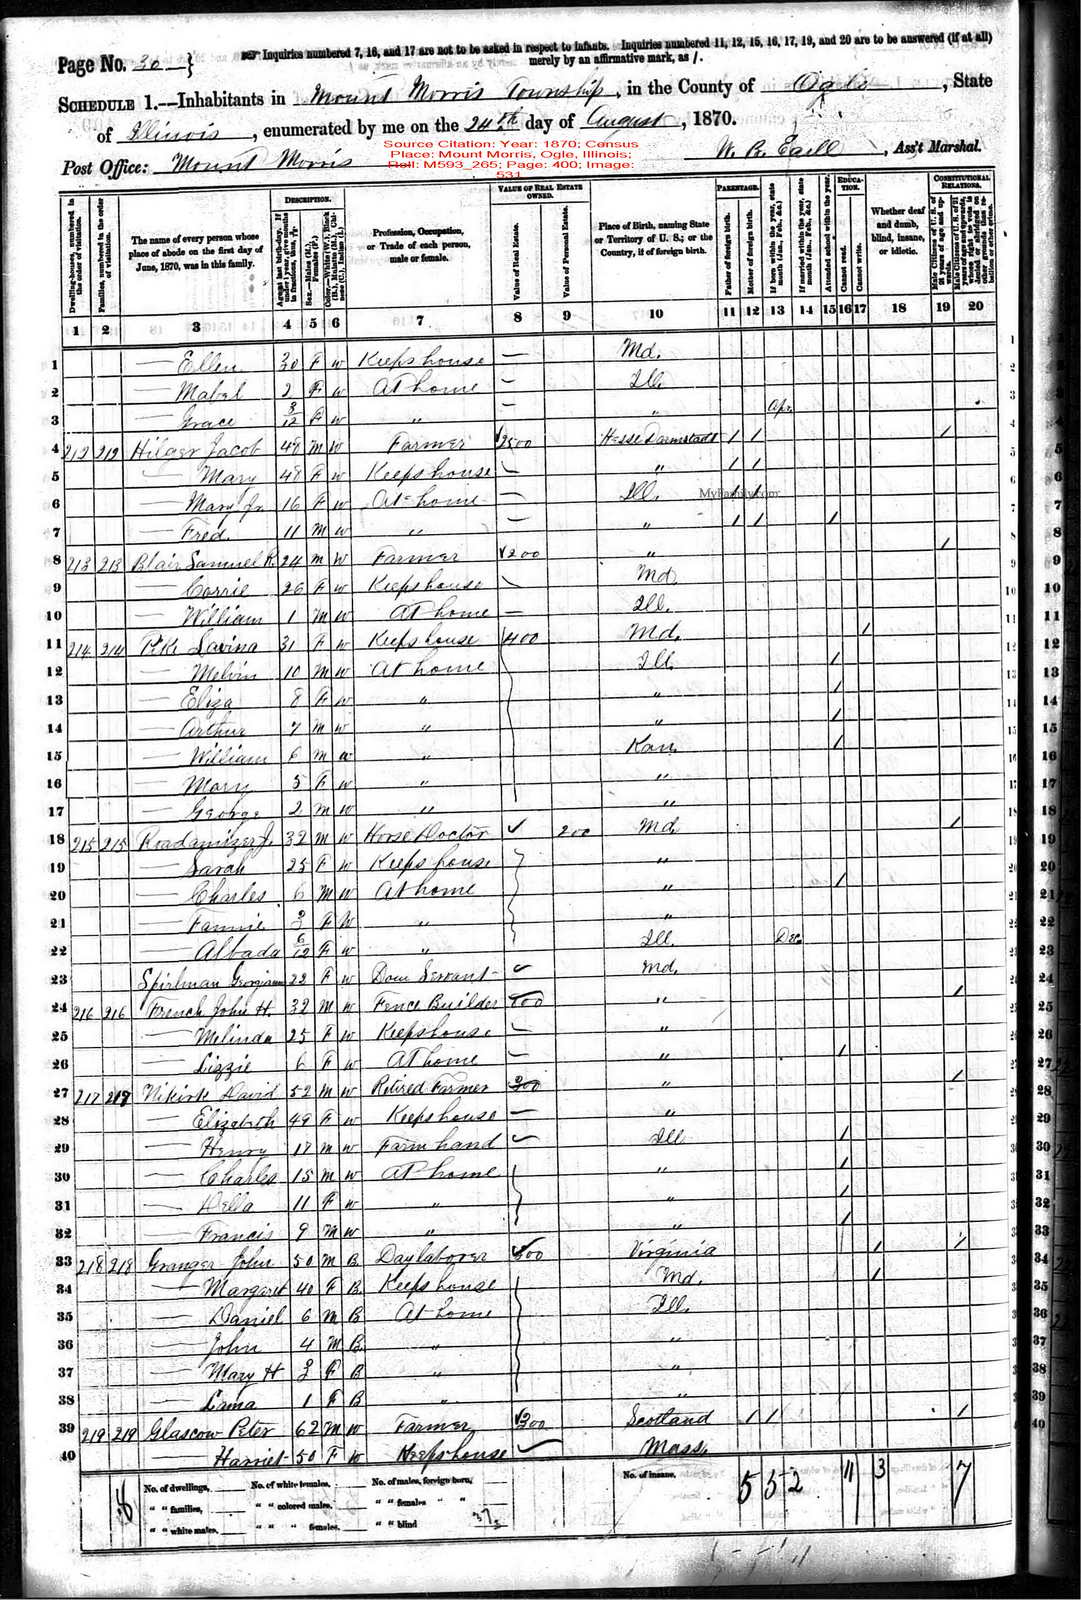 Page No. 30 } ☞ Inquiries numbered 7, 16, and 17 are not to be asked in respect to infants. Inquiries numbered 11, 12, 15, 16, 17, 19, and 20 are to be answered (if at all)
merely by an affirmative mark, as /.
SCHEDULE 1.—Inhabitants in Mount Morris Township, in the County of Ogle, State
of Illinois, enumerated by me on the 24th day of August, 1870.
Source Citation: Year: 1870; Census
Place: Mount Morris, Ogle, Illinois;
Roll: M593_265; Page: 400; Image:
531
Post Office: Mount Morris W. B., Ass't Marshal.
Dwelling-houses, numbered in the order of visitation.
Families, numbered in the order of visitation.
The name of every person whose place of abode on the first day of June, 1870, was in this family.
DESCRIPTION.
Age at last birth-day. If under 1 year, give months in fractions, thus, 3/12
Sex.—Males (M.), Females (F.)
Color.—White (W.), Black (B.), Mulatto (M.), Chinese (C.), Indian (I.)
Profession, Occupation, or Trade of each person, male or female.
VALUE OF REAL ESTATE OWNED.
Value of Real Estate.
Value of Personal Estate.
Place of Birth, naming State or Territory of U. S.; or the Country, if of foreign birth.
PARENTAGE.
Father of foreign birth.
Mother of foreign birth.
If born within the year, state month (Jan., Feb., &c.)
If married within the year, state month (Jan., Feb., &c.)
Attended school within the year.
EDUCATION.
Cannot read.
Cannot write.
Whether deaf and dumb, blind, insane, or idiotic.
CONSTITUTIONAL RELATIONS.
Male Citizens of U. S. of 21 years of age and upwards.
Male Citizens of U. S. of 21 years of age and upwards, whose right to vote is denied or abridged on other grounds than rebellion or other crime.
1 2 3 4 5 6 7 8 9 10 11 12 13 14 15 16 17 18 19 20
1 — Ellen 30 F W Keeps house — Md.
2 — Mabel 2 F W At home — Ill.
3 — Grace 3/12 F W " — " Apr.
4 212 212 Hilger Jacob 48 M W Farmer 2500 Hesse Darmstadt / / /
5 — Mary 48 F W Keeps house " / /
6 — Mary Jr 16 F W At home — Ill. / /
MyFamily.com
7 — Fred 11 M W " — " / / /
8 213 213 Blair Samuel R. 24 M W Farmer 1200 " /
9 — Corrie 26 F W Keeps house Md.
10 — William 1 M W At home — Ill.
11 214 214 Pike Lavina 31 F W Keeps house 400 Md. /
12 — Melvin 10 M W At home Ill. /
13 — Eliza 8 F W " " /
14 — Arthur 7 M W " " /
15 — William 6 M W " Kan. /
16 — Mary 5 F W " "
17 — George 2 M W " "
18 215 215 Roadamizer J. 32 M W Horse Doctor 200 Md. /
19 — Sarah 25 F W Keeps house "
20 — Charles 6 M W At home " /
21 — Fannie 3 F W " "
22 — Albada 6/12 F W " Ill. Dec.
23 Spirlman Georgianna 22 F W Dom Servant Md.
24 216 216 French John H. 32 M W Fence Builder 400 " /
25 — Melinda 25 F W Keeps house — "
26 — Lizzie 6 F W At home — " /
27 217 217 Nikirk David 52 M W Retired Farmer 300 " /
28 — Elizabeth 49 F W Keeps house — "
29 — Henry 17 M W Farm hand Ill. /
30 — Charles 15 M W At home " /
31 — Della 11 F W " " /
32 — Francis 9 M W " " /
33 218 218 Granger John 50 M B. Day laborer 300 Virginia / /
34 — Margaret 40 F B. Keeps house Md. /
35 — Daniel 6 M B At home Ill.
36 — John 4 M B. " "
37 — Mary H 3 F B " "
38 — Lama 1 F B " "
39 219 219 Glascow Peter 62 M W Farmer Scotland / / /
40 Harriet 50 F W Keeps house Mass.
No. of dwellings, No. of white females, No. of males, foreign born, No. of insane, 5 5 2 11 3 7
" " families, " " colored males, " " females " "
" " white males, " " " females, " " blind